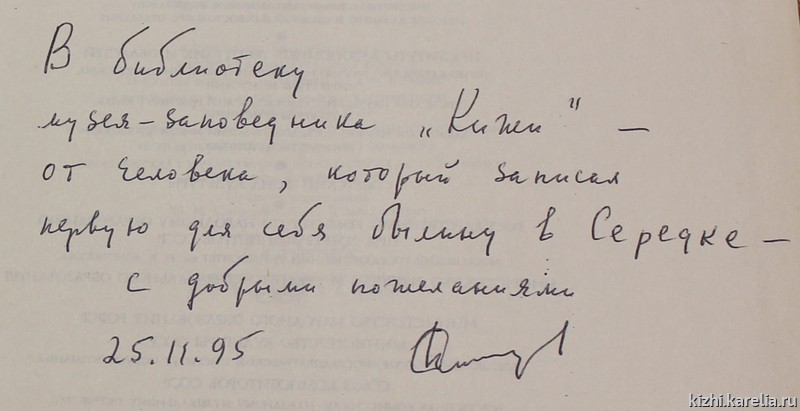 В библиотеку
музея-заповедника „Кижи" —
от человека, который записал
первую для себя былину в Середке —
с добрыми пожеланиями
25.11.95
kizhi.karelia.ru